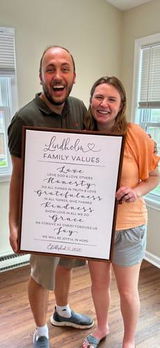 Lindholm
FAMILY VALUES
Love
LOVE GOD AND LOVE OTHERS
Honesty
DO ALL THINGS IN TRUTH & LOVE
Gratefulness
IN ALL THINGS GIVE THANKS
Kindness
SHOW LOVE IN ALL WE DO
Grace
WE FORGIVE AS GOD FORGAVE US
Joy
WE WILL BE JOYFUL IN HOPE